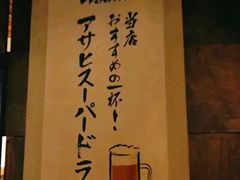 当店
おすすめの一杯！、
アサヒスーパードラ